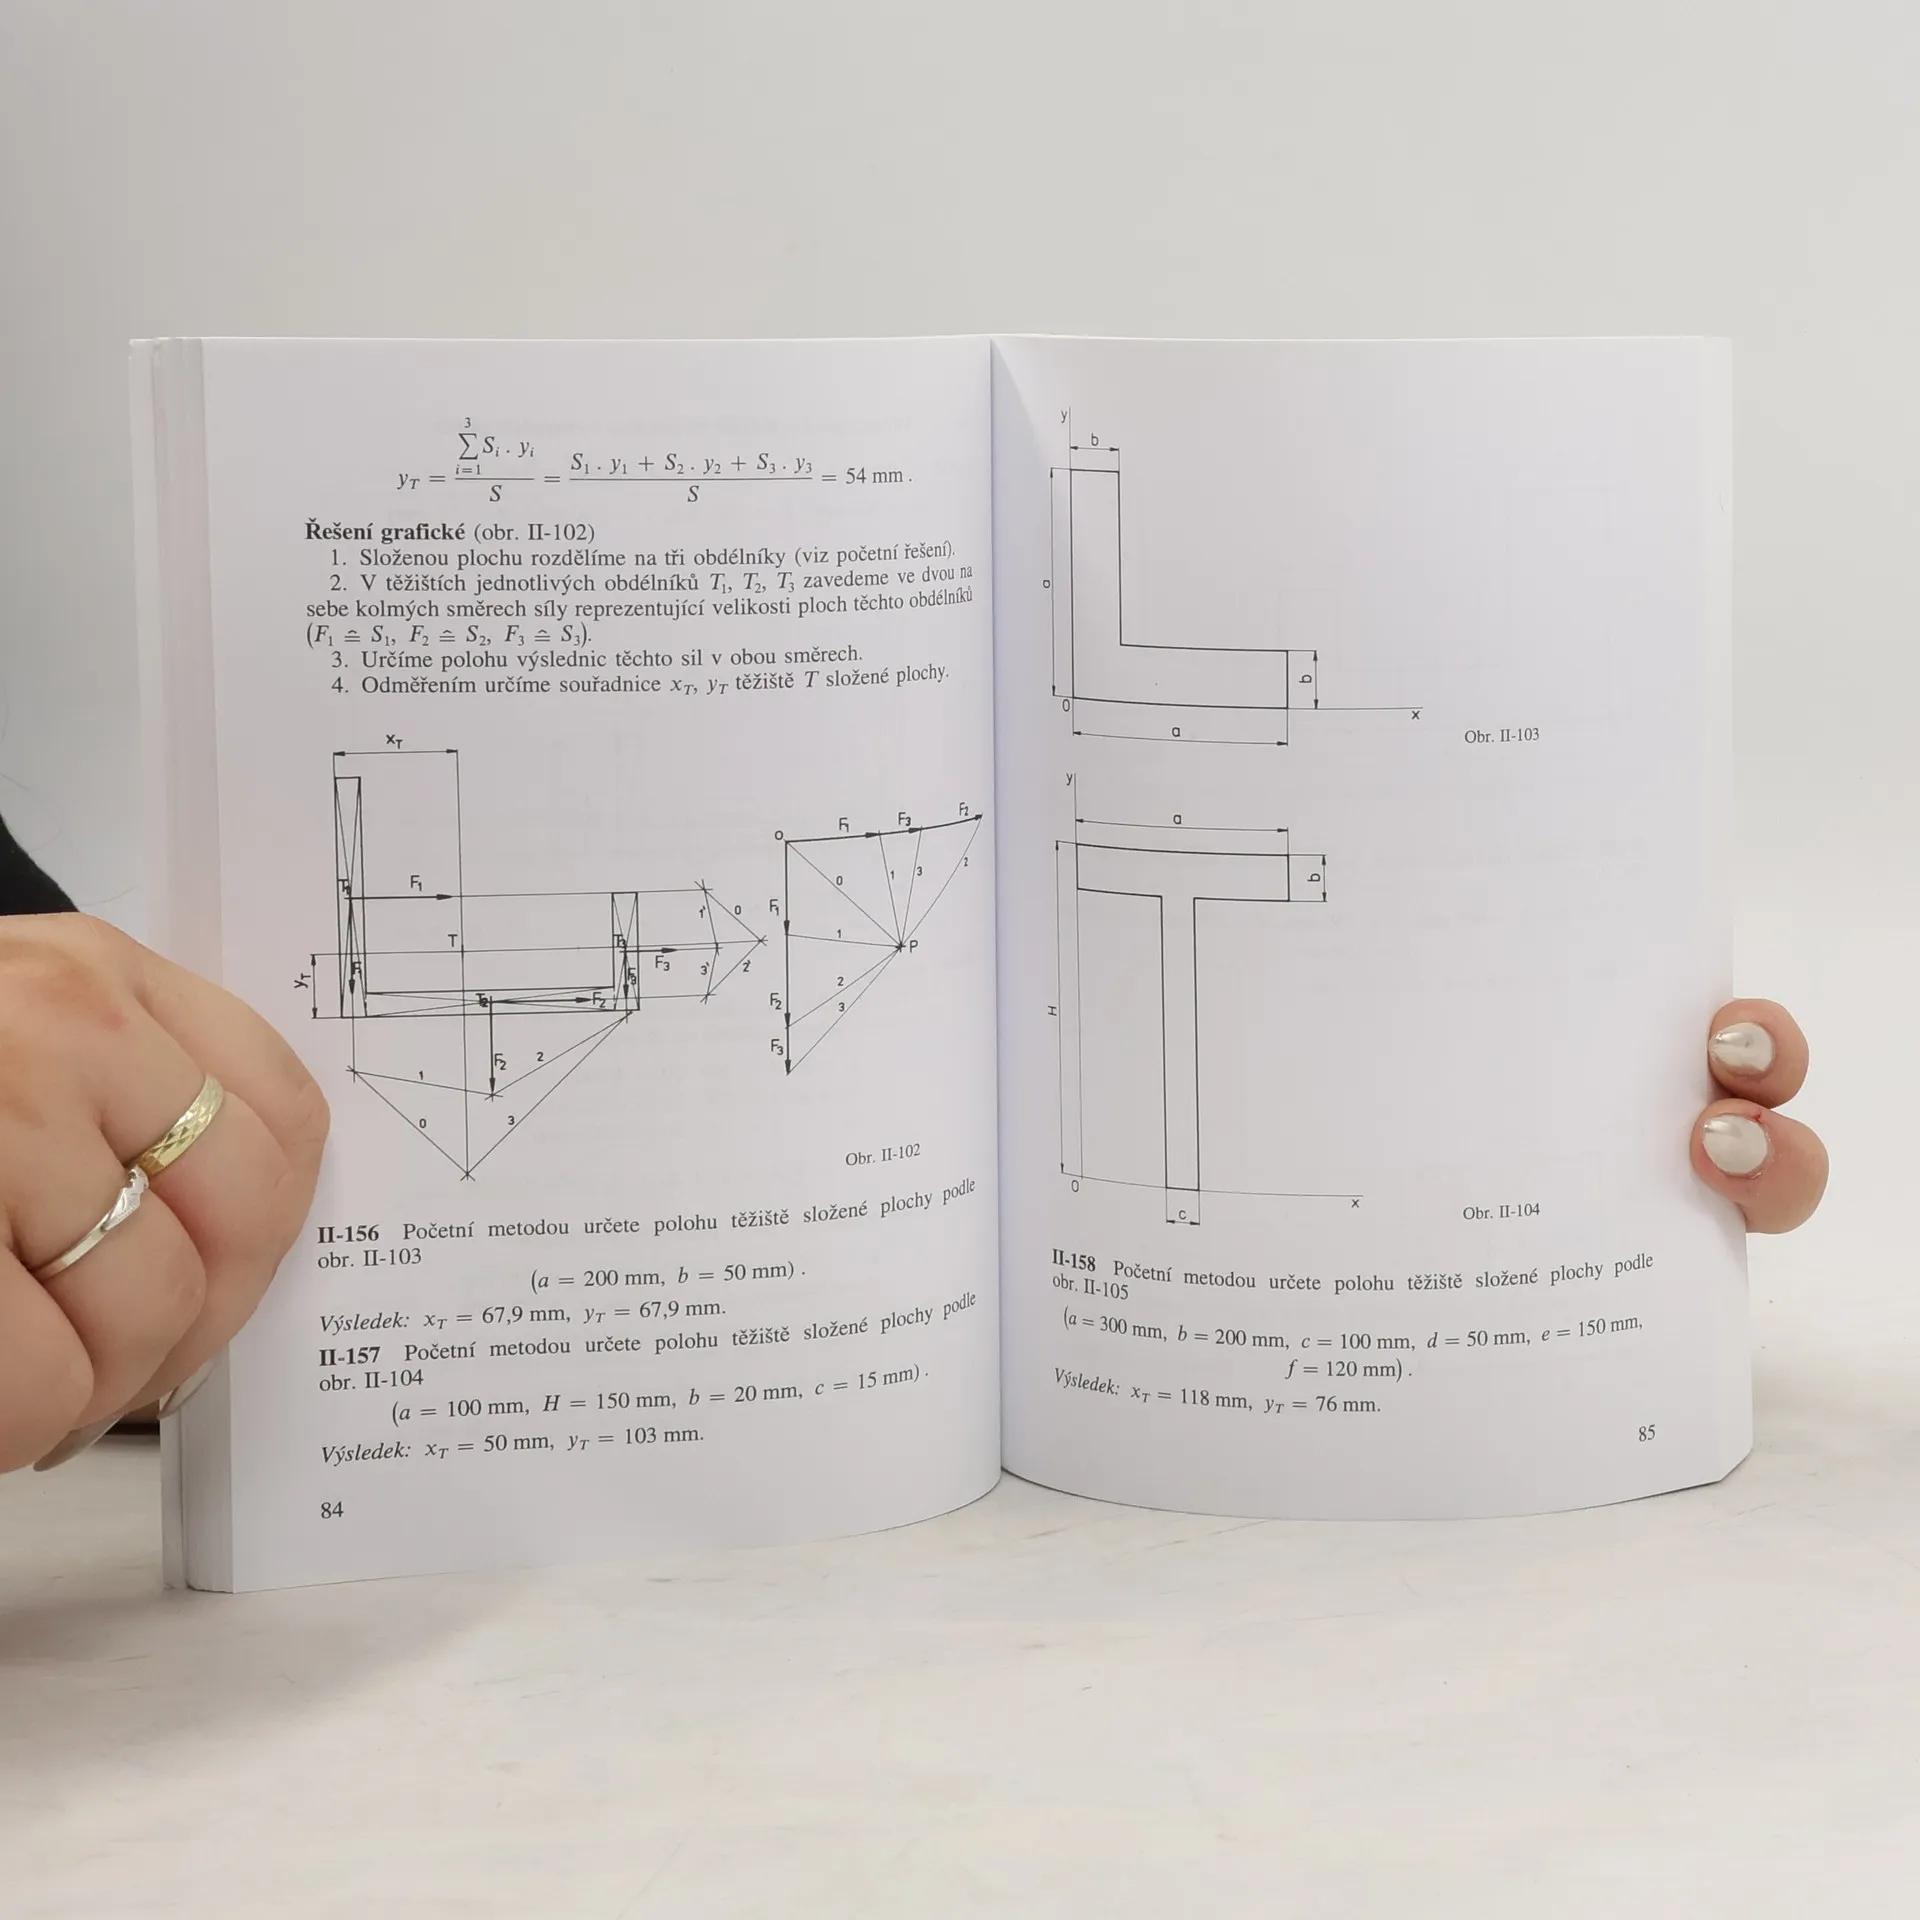 3
∑ Sᵢ . yᵢ
i=1
y_T = ――― = S₁ . y₁ + S₂ . y₂ + S₃ . y₃ = 54 mm .
S S
Řešení grafické (obr. II-102)
1. Složenou plochu rozdělíme na tři obdélníky (viz početní řešení).
2. V těžištích jednotlivých obdélníků T₁, T₂, T₃ zavedeme ve dvou na
sebe kolmých směrech síly reprezentující velikosti ploch těchto obdélníků
(F₁ ≙ S₁, F₂ ≙ S₂, F₃ ≙ S₃).
3. Určíme polohu výslednic těchto sil v obou směrech.
4. Odměřením určíme souřadnice x_T, y_T těžiště T složené plochy.
x_T
T₁ F₁
F₁
T
T₃ F₃
F₃
y_T
T₂ F₂
F₂
1' 0
3' 2'
1 2
0 3
0 F₁ F₃ F₂
0 1 3 2
F₁
1 P
2
F₂ 3
F₃
Obr. II-102
II-156 Početní metodou určete polohu těžiště složené plochy podle
obr. II-103
(a = 200 mm, b = 50 mm) .
Výsledek: x_T = 67,9 mm, y_T = 67,9 mm.
II-157 Početní metodou určete polohu těžiště složené plochy podle
obr. II-104
(a = 100 mm, H = 150 mm, b = 20 mm, c = 15 mm) .
Výsledek: x_T = 50 mm, y_T = 103 mm.
84
y
b
a
b
0
x
a
Obr. II-103
y
a
b
H
0
x
c
Obr. II-104
II-158 Početní metodou určete polohu těžiště složené plochy podle
obr. II-105
(a = 300 mm, b = 200 mm, c = 100 mm, d = 50 mm, e = 150 mm,
f = 120 mm) .
Výsledek: x_T = 118 mm, y_T = 76 mm.
85